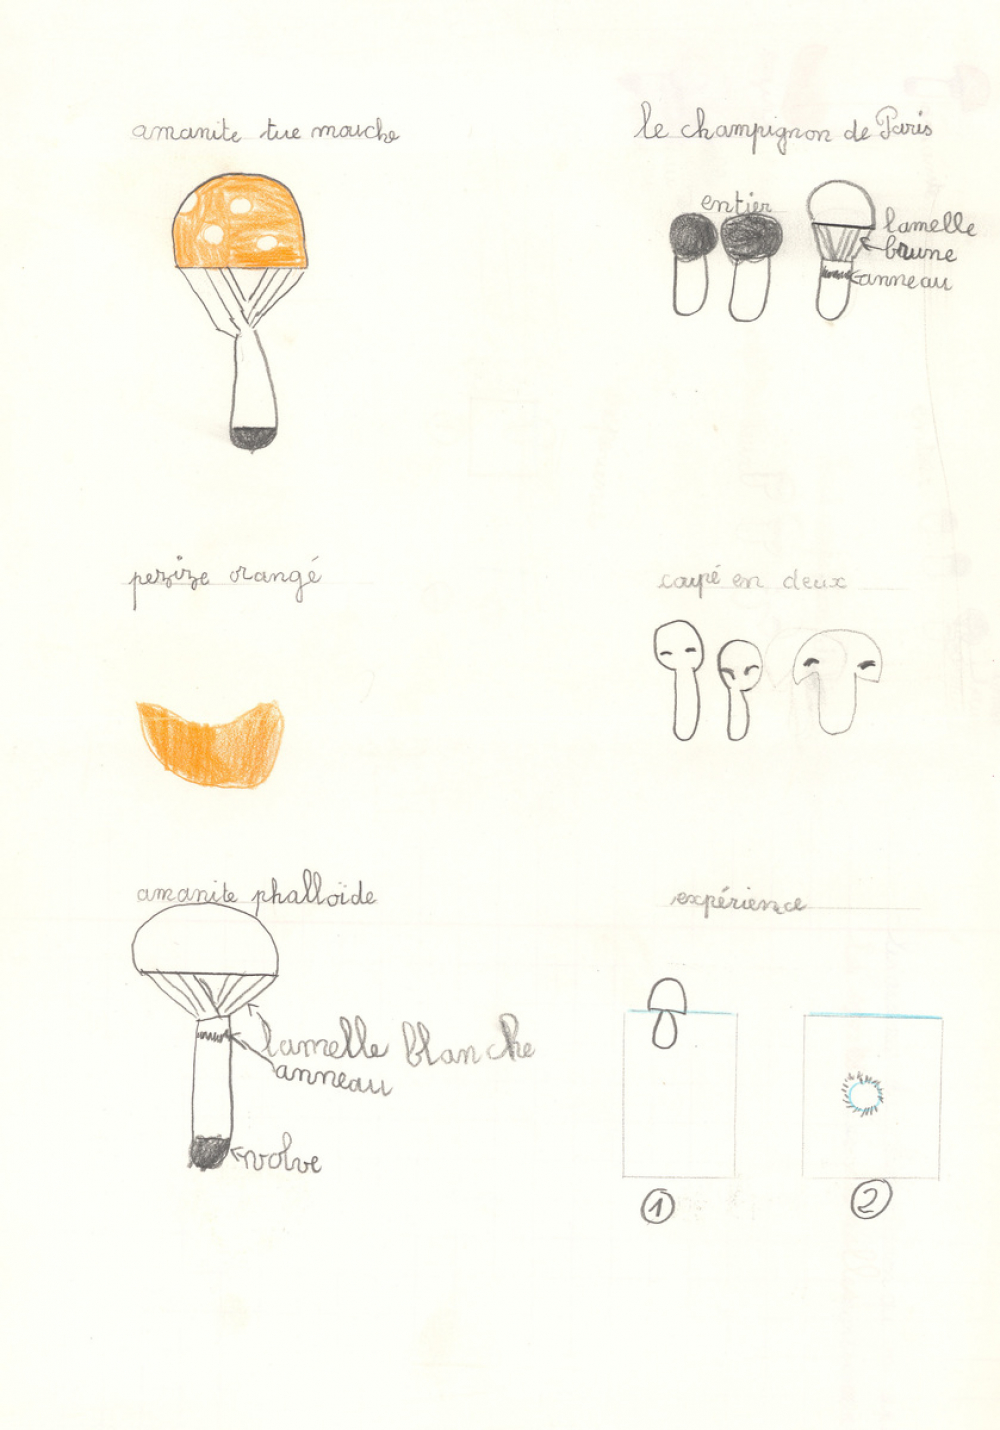 amanite tue mouche
le champignon de Paris
entier
lamelle
brune
anneau
pezize orangé
coupé en deux
amanite phalloïde
lamelle blanche
anneau
volve
expérience
1
2